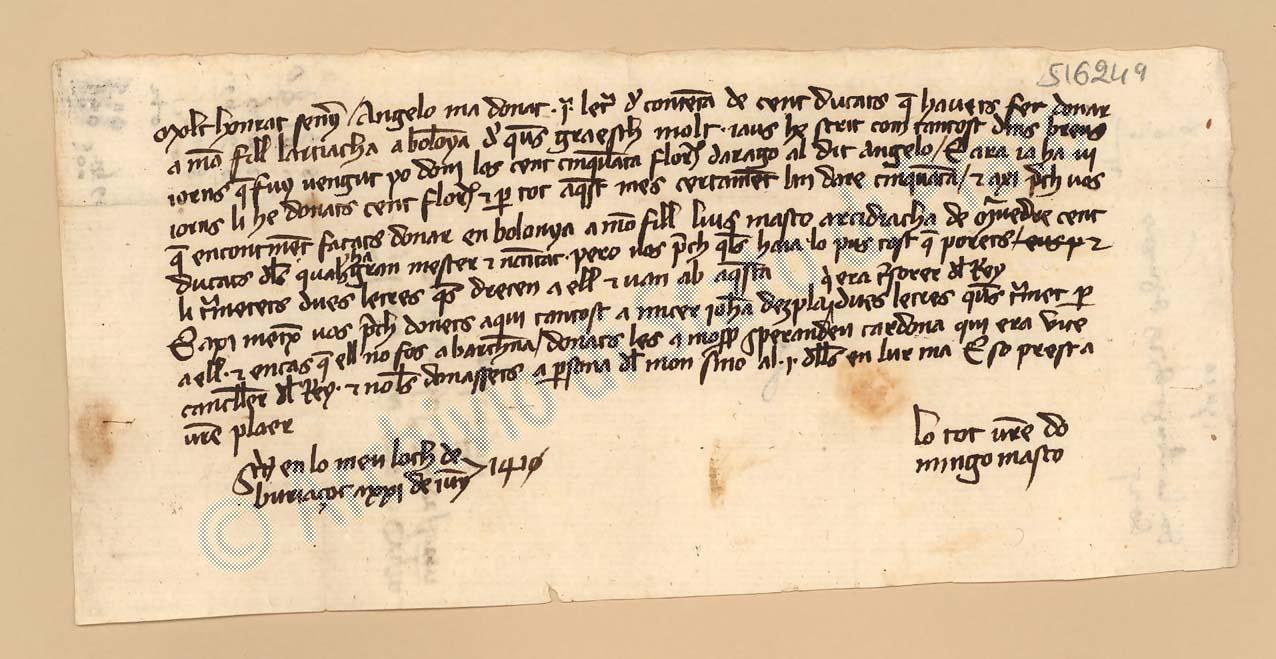 516249
Molt honrat seny / Angelo ma donat .j. letr de contenta de cent ducats q havets fet donar
a mo fill lartiacha a bolonya de qus graesch molt. iaus he scrit com tantost dins breus
iorns q fuy vengut yo doni los cent cinquata florins darago al dit Angelo / E ara ia ha vi
iorns li he donats cent florins & per tot aqst mes certamet lin dare cinquata / & axi prech vos
q encontinet façats donar en bolonya a mo fill luis masco arcidiacha de muruedre cent
ducats dels quals ha gran mester & necitat. pero vos prech qls haia lo pus tost q porets &
li trametets dues letres qs drecen a ell & van ab aqsta
q era tresorer del Rey
E axi metex vos prech donets aqui tantost a micer ioha dezpla dues letres qus tramet per
a ell. & encas q ell no fos a barchna / donats les a mossen Speranden cardona qui era vice
canceller del Rey. & nols donassets a persona del mon sino al .j. dells en lur ma E so prest a
vre plaer
Scrit en lo meu loch de
buriaçot a xxi de iuny 1410
lo tot vre do
mingo masco
© Archivio di Stato di